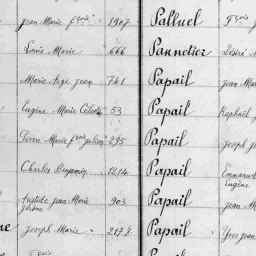 Jean Marie fçois 1907 Palluel fçois
Louis Marie 666 Pannetier Désiré
Marie Ange Jean 761 Papail Jean Ma
Eugène Marie 53 Papail Raphaël
Pierre Marie fçois Julien 295 Papail Joseph J
Charles Benjamin 1214 Papail Emmanuel
Eugène
Aristide Jean Marie 903 Papail Jean M
Joseph Marie 2178 Papail Yves Jean
Papail